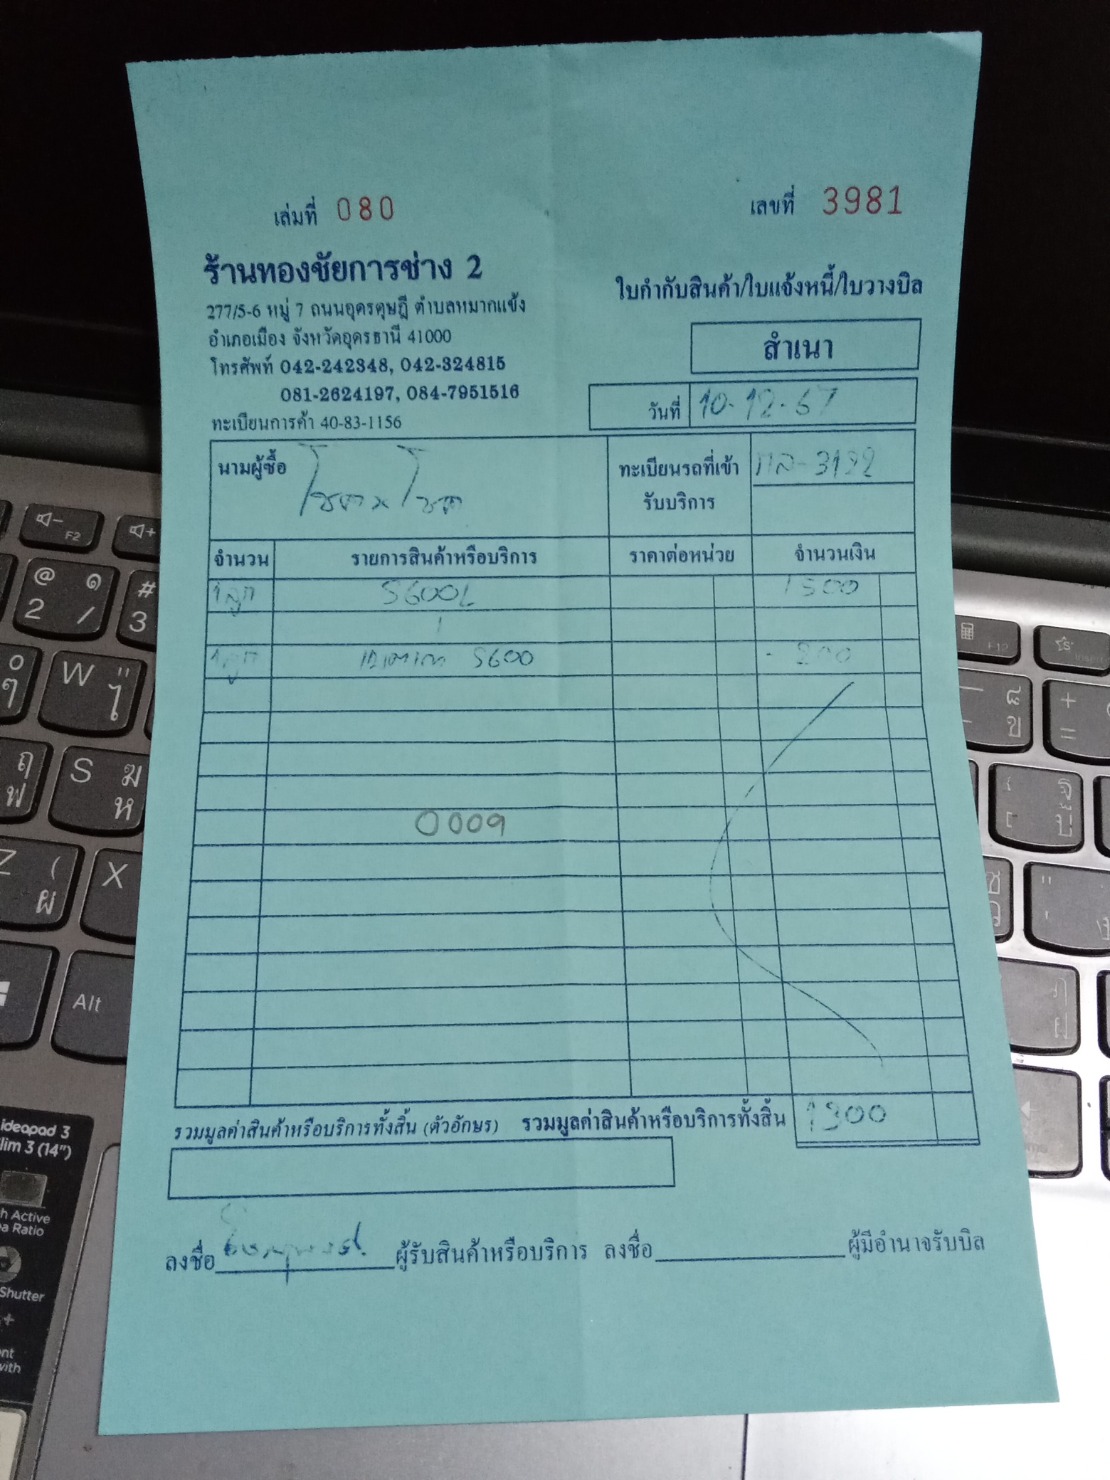 เล่มที่ 080
เลขที่ 3981
ร้านทองชัยการช่าง 2
277/5-6 หมู่ 7 ถนนอุดรดุษฎี ตำบลหมากแข้ง
อำเภอเมือง จังหวัดอุดรธานี 41000
โทรศัพท์ 042-242348, 042-324815
081-2624197, 084-7951516
ทะเบียนการค้า 40-83-1156
ใบกำกับสินค้า/ใบแจ้งหนี้/ใบวางบิล
สำเนา
วันที่ 10-12-67
นามผู้ซื้อ
ทะเบียนรถที่เข้า
รับบริการ
จำนวน รายการสินค้าหรือบริการ ราคาต่อหน่วย จำนวนเงิน
1 ลูก S600L 1500
1 ลูก S600 - 200
0009
รวมมูลค่าสินค้าหรือบริการทั้งสิ้น (ตัวอักษร) รวมมูลค่าสินค้าหรือบริการทั้งสิ้น 1300
ลงชื่อ ผู้รับสินค้าหรือบริการ ลงชื่อ ผู้มีอำนาจรับบิล
ideapad 3
Alt